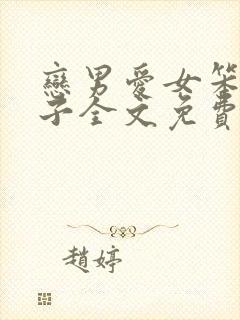 戀男愛女笨
子全文免費
趙婷